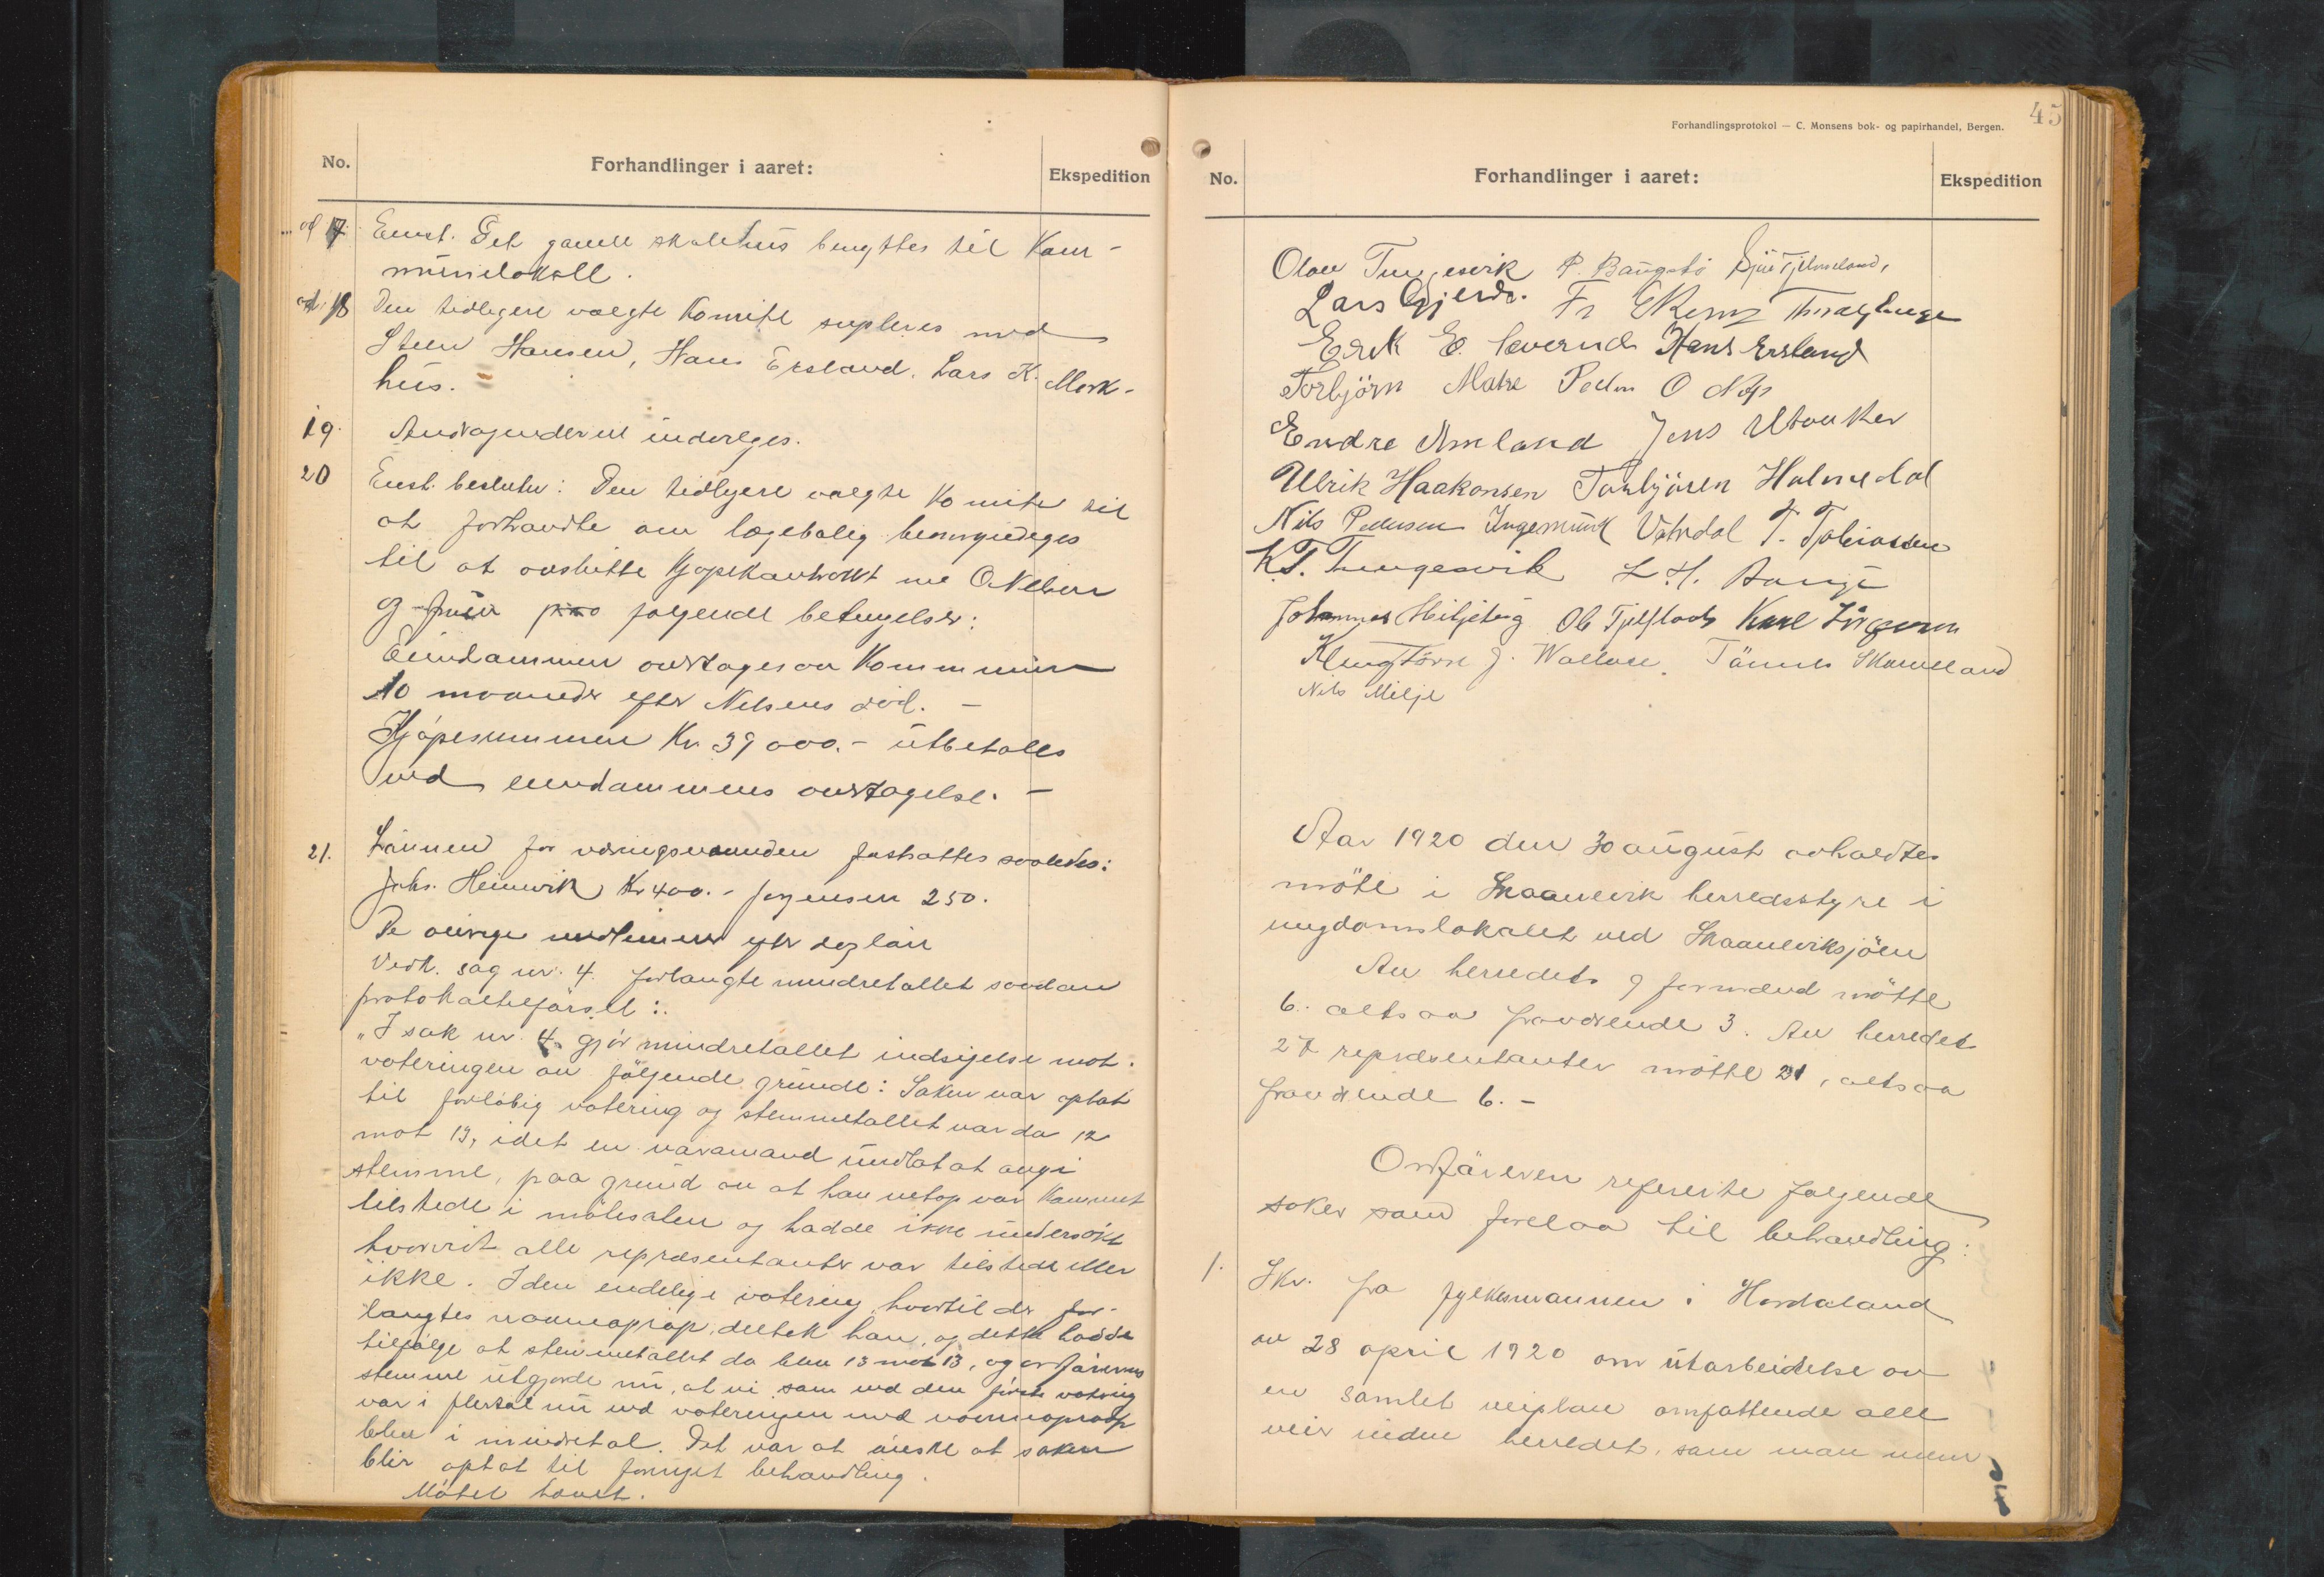 No.
Forhandlinger i aaret:
Ekspedition
ad 17. Enst. Det gamle skolehus benyttes til Kom-
munelokall.
ad. 18 Den tidligere valgte Komite supleres med
Steen Hansen, Hans Ersland, Lars K. Mork-
hus.
19. Andragenderne inavlges.
20 Enst. beslutn: Den tidligere valgte Komite til
at forhandle om lægebolig bemyndiges
til at avslutte Kjøpekontrakt me O. Nelsen
og frue paa følgende betingelser:
Eiendammen overtages av Kommunen
10 maaneder efter Nelsens død. –
Kjøpesummen Kr. 39 000.- utbetales
ved eiendammens overtagelse. –
21. Lönnen for veringsnemnden fastsattes saaledes:
Johs. Heimvik Kr 400.- Jørgensen 250.
De øvrige medlemmer efter dagløn
Vedk. sag nr. 4. forlangte mindretallet saadan
protokoltilførsel:
"I sak nr. 4. gjør mindretallet indsigelse mot
voteringen av følgende grunde: Saken var optat
til foreløbig votering og stemmetallet var da 12
mot 13, idet en varamand undlot at avgi
stemme, paa grund av at han netop var kommet
tilstede i møtesalen og hadde ikke undersøkt
hvorvidt alle repræsentanter var tilstede eller
ikke. I den endelige votering, hvortil der for-
langtes navneoprop, deltok han, og dette hadde
tilfølge at stemmetallet da blev 13 mot 13, og ordførerens
stemme utgjorde nu, at vi som ved den første votering
var i flertal nu ved voteringen ved navneoprop
blev i mindretal. Det var at ønske at saken
blir optat til fornyet behandling.
Møtet hævet.
45
Forhandlingsprotokol — C. Monsens bok- og papirhandel, Bergen.
No.
Forhandlinger i aaret:
Ekspedition
Olav Tungesvik P. Baugstø Sjur Tjelmeland,
Lars Gjerde. Fr E Remz
Erik E. Hans Ersland
Torbjörn Matre Peder O Næs
Endre Amland Jens Utaaker
Ulrik Haakonsen Torbjören Holmedal
Nils Pedersen Ingemund Vatndal T. Tobiassen
K.T. Tungesvik L. H. Bauge
Johannes Miljeteig Ole Tjelflaat Karl
J. Wallace. Tönnes Skaaneland
Nils Milje
Aar 1920 den 30 august avholdtes
möte i Skaanevik herredsstyre i
ungdomslokalet ved Skaaneviksjöen
Av herredets 9 formænd mötte
6. altsaa fraværende 3. Av herredets
27 repræsentanter mötte 21, altsaa
fraværende 6. –
Ordføreren refererte følgende
saker som forelaa til behandling:
1. Skr. fra fylkesmannen i Hordaland
av 28 april 1920 om utarbeidelse av
en samlet veiplan omfattende alle
veier inden herredet, som man mener